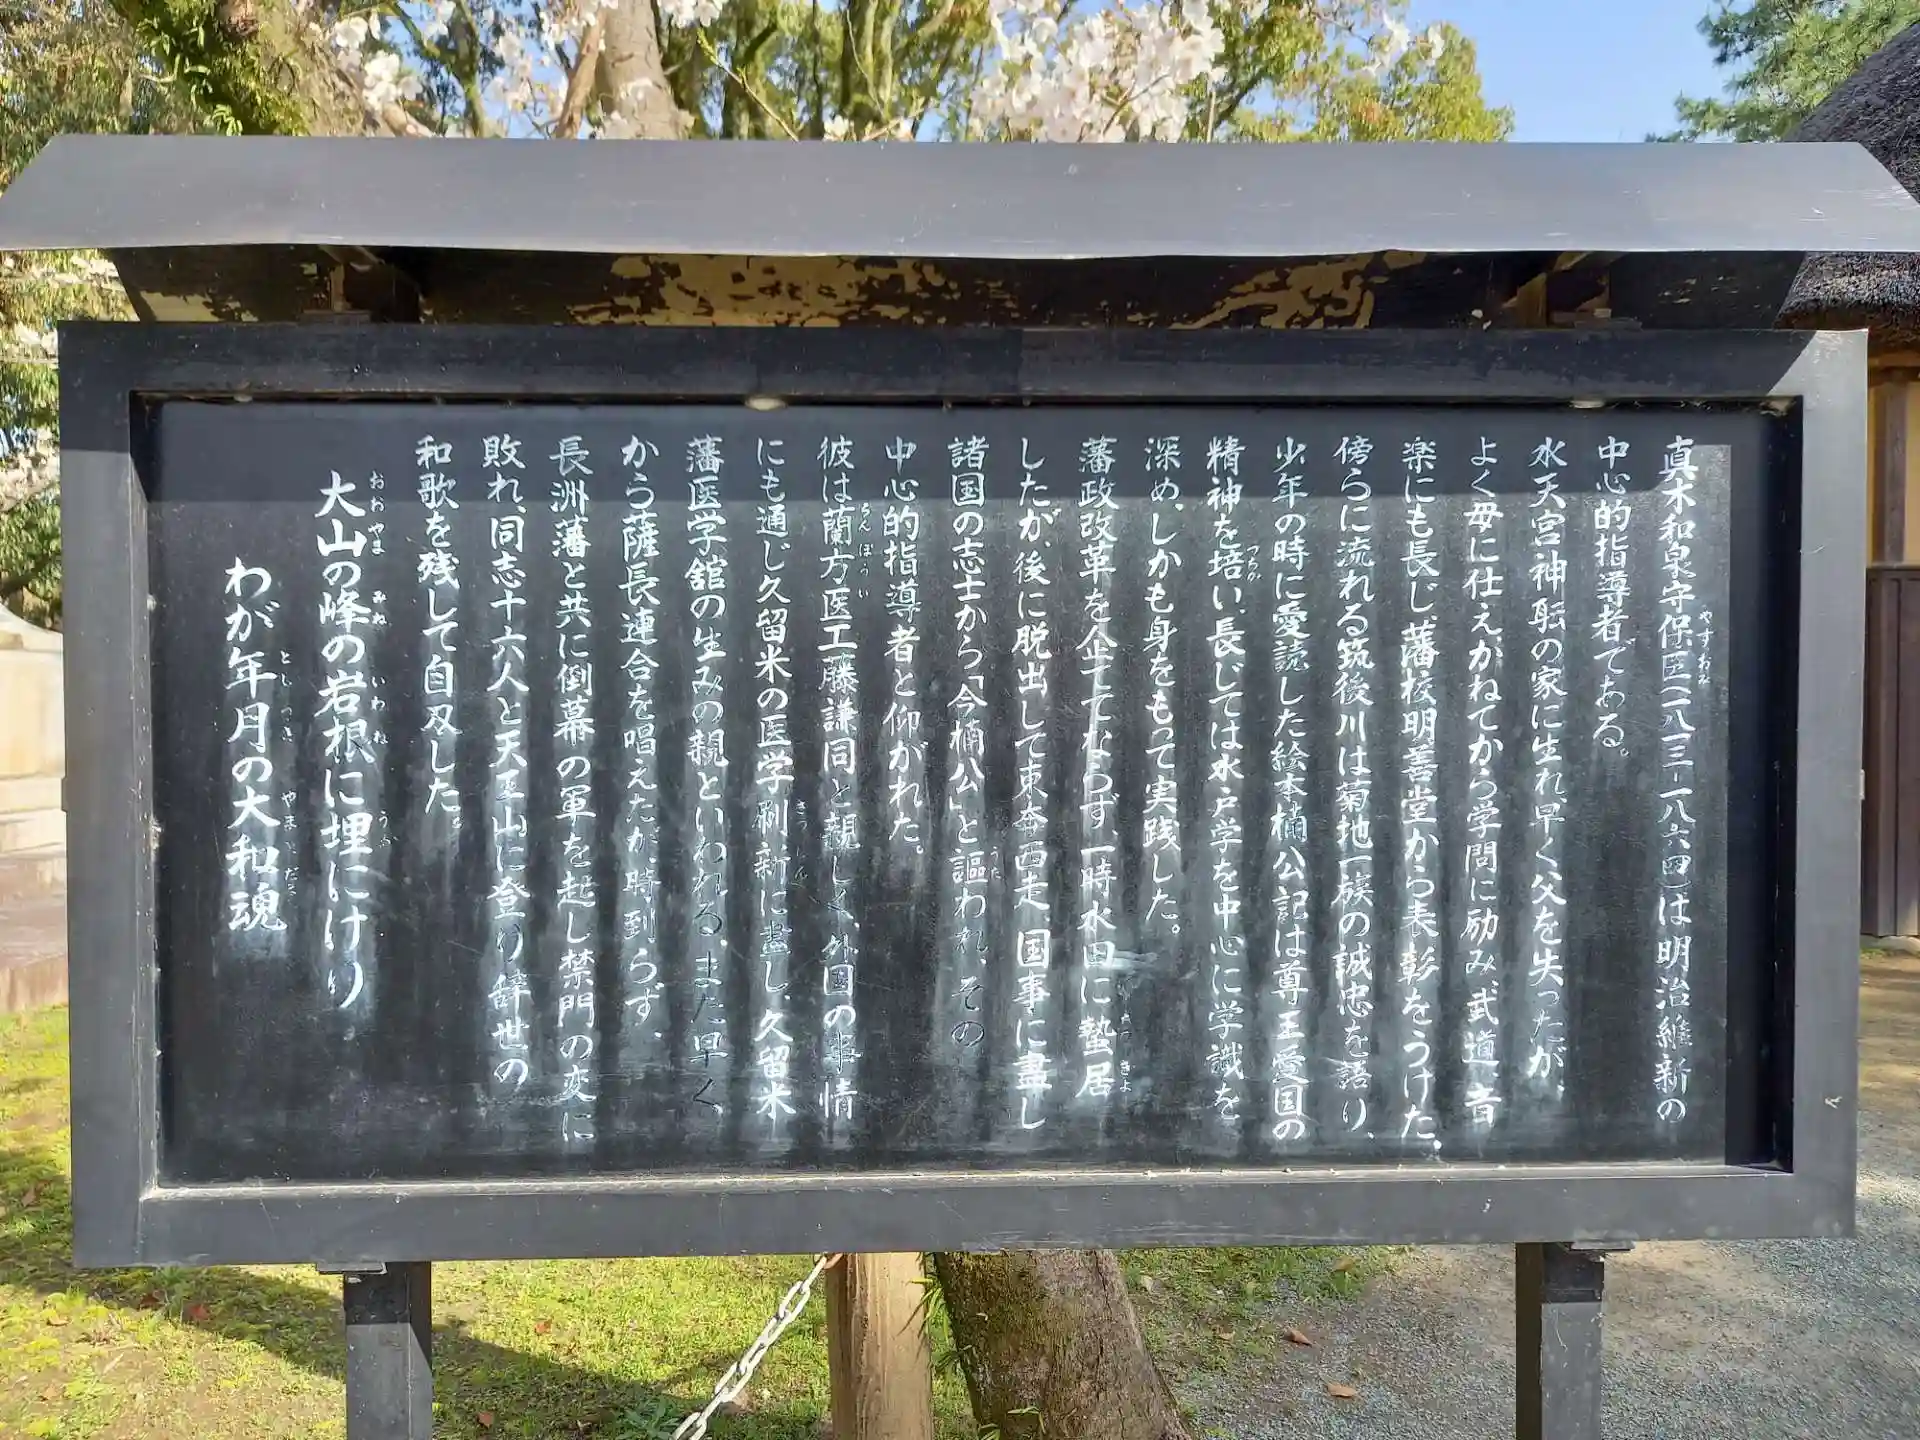 真木和泉守保臣(一八一三-一八六四)は明治維新の
中心的指導者である。
水天宮神職の家に生れ早く父を失ったが、
よく母に仕え、かねてから学問に励み、武道、音
楽にも長じ、藩校明善堂から表彰をうけた。
傍らに流れる筑後川は菊池一族の誠忠を語り、
少年の時に愛読した絵本楠公記は尊王愛国の
精神を培い、長じては水戸学を中心に学識を
深め、しかも身をもって実践した。
藩政改革を企ててならず、一時水田に蟄居
したが、後に脱出して東奔西走、国事に盡し
諸国の志士から「今楠公」と謳われ、その
中心的指導者と仰がれた。
彼は蘭方医工藤謙同と親しく、外国の事情
にも通じ久留米の医学刷新に盡し、久留米
藩医学館の生みの親といわれる、また早く
から薩長連合を唱えたが、時到らず、
長洲藩と共に倒幕の軍を起し禁門の変に
敗れ、同志十六人と天王山に登り辞世の
和歌を残して自刃した。
大山の峰の岩根に埋にけり
わが年月の大和魂